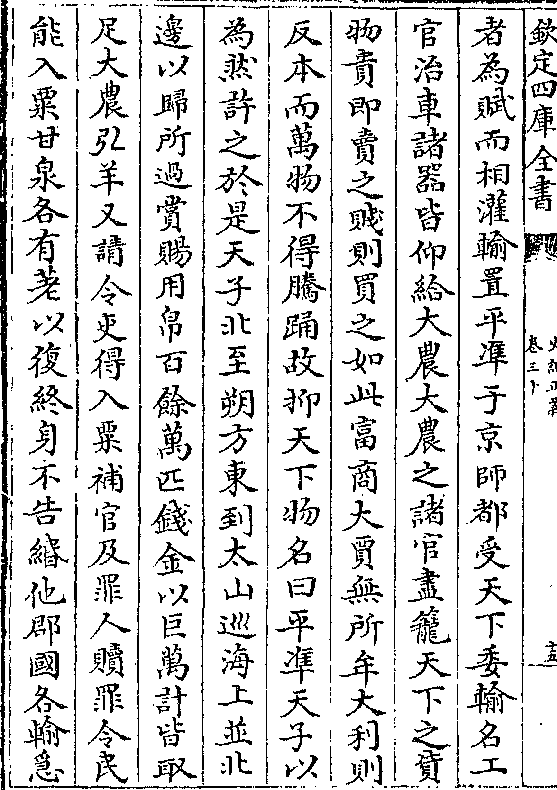 欽定四庫全書
史記正義
卷三十
者為賦而相灌輸置平凖于京師都受天下委輸名工
官治車諸器皆仰給大農大農之諸官盡籠天下之貨
物貴即賣之賤則買之如此富商大賈無所牟大利則
反本而萬物不得騰踊故抑天下物名曰平凖天子以
為然許之於是天子北至朔方東到太山巡海上並北
邊以歸所過賞賜用帛百餘萬匹錢金以巨萬計皆取
足大農弘羊又請令吏得入粟補官及罪人贖罪令民
能入粟甘泉各有差以復終身不告緡他郡國各輸急